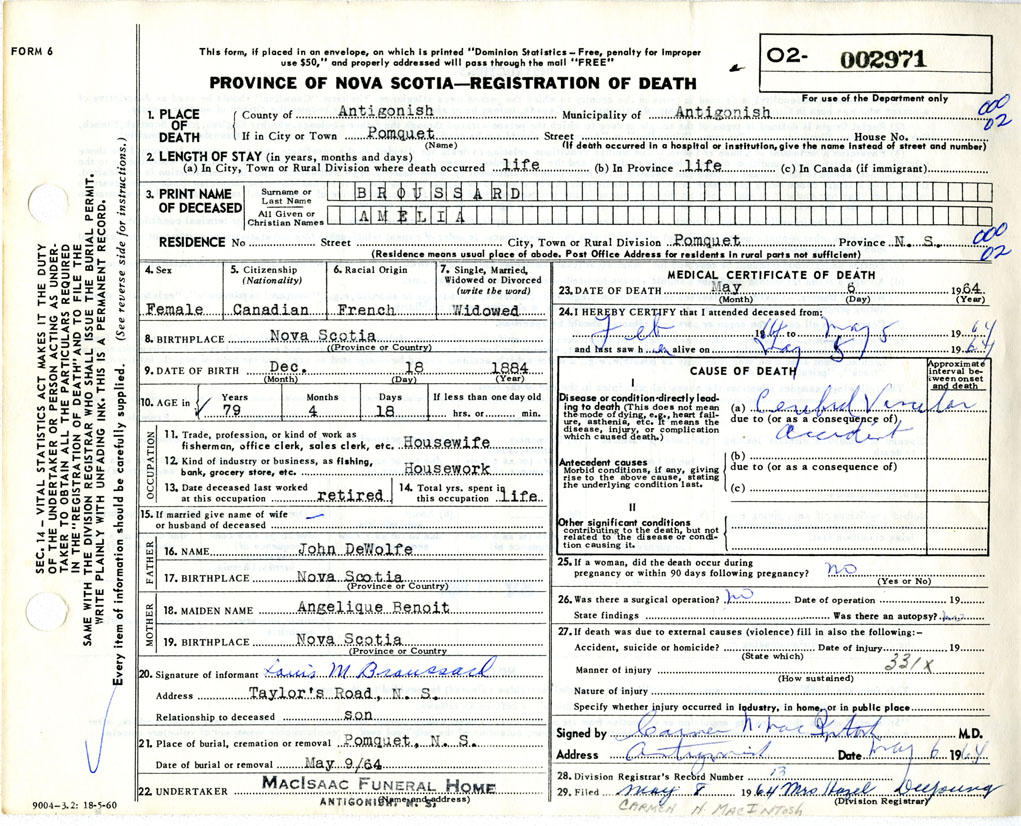 FORM 6
This form, if placed in an envelope, on which is printed "Dominion Statistics – Free, penalty for improper
use $50," and properly addressed will pass through the mail "FREE"
02- 002971
For use of the Department only
PROVINCE OF NOVA SCOTIA—REGISTRATION OF DEATH
000
02
1. PLACE OF DEATH
County of Antigonish Municipality of Antigonish
If in City or Town Pomquet Street House No.
(Name) (If death occurred in a hospital or institution, give the name instead of street and number)
2. LENGTH OF STAY (in years, months and days)
(a) In City, Town or Rural Division where death occurred life (b) In Province life (c) In Canada (if immigrant)
3. PRINT NAME OF DECEASED
Surname or Last Name BROUSSARD
All Given or Christian Names AMELIA
RESIDENCE No Street City, Town or Rural Division Pomquet Province N. S.
000
02
(Residence means usual place of abode. Post Office Address for residents in rural parts not sufficient)
4. Sex
Female
5. Citizenship
(Nationality)
Canadian
6. Racial Origin
French
7. Single, Married, Widowed or Divorced
(write the word)
Widowed
8. BIRTHPLACE Nova Scotia
(Province or Country)
9. DATE OF BIRTH Dec. 18 1884
(Month) (Day) (Year)
10. AGE in Years Months Days If less than one day old
79 4 18 hrs. or min.
OCCUPATION
11. Trade, profession, or kind of work as
fisherman, office clerk, sales clerk, etc. Housewife
12. Kind of industry or business, as fishing,
bank, grocery store, etc. Housework
13. Date deceased last worked
at this occupation retired
14. Total yrs. spent in
this occupation life
15. If married give name of wife
or husband of deceased –
FATHER
16. NAME John DeWolfe
17. BIRTHPLACE Nova Scotia
(Province or Country)
MOTHER
18. MAIDEN NAME Angelique Benoit
19. BIRTHPLACE Nova Scotia
(Province or Country)
20. Signature of informant Louis M Broussard
Address Taylor's Road, N. S.
Relationship to deceased son
21. Place of burial, cremation or removal Pomquet, N. S.
Date of burial or removal May 9/64
22. UNDERTAKER MACISAAC FUNERAL HOME
ANTIGONISH, N. S.
(Name and address)
MEDICAL CERTIFICATE OF DEATH
23. DATE OF DEATH May 6 1964
(Month) (Day) (Year)
24. I HEREBY CERTIFY that I attended deceased from:
Feb 1964 to May 5 1964
and last saw her alive on May 5 1964
CAUSE OF DEATH
Approximate interval between onset and death
I
Disease or condition directly leading to death (This does not mean the mode of dying, e.g., heart failure, asthenia, etc. It means the disease, injury, or complication which caused death.)
(a) Cerebral Vascular
due to (or as a consequence of)
accident
Antecedent causes
Morbid conditions, if any, giving rise to the above cause, stating the underlying condition last.
(b)
due to (or as a consequence of)
(c)
II
Other significant conditions
contributing to the death, but not related to the disease or condition causing it.
25. If a woman, did the death occur during
pregnancy or within 90 days following pregnancy? no
(Yes or No)
26. Was there a surgical operation? no Date of operation 19
State findings Was there an autopsy? no
27. If death was due to external causes (violence) fill in also the following:–
Accident, suicide or homicide? Date of injury 19
(State which)
331x
Manner of injury
(How sustained)
Nature of injury
Specify whether injury occurred in industry, in home, or in public place
Signed by Carmen N. MacIntosh M.D.
Address Antigonish Date May 6 1964
28. Division Registrar's Record Number 13
29. Filed May 8 1964 Mrs Hazel DeYoung
(Division Registrar)
CARMEN N MACINTOSH
9004-3.2: 18-5-60
SEC. 14 – VITAL STATISTICS ACT MAKES IT THE DUTY
OF THE UNDERTAKER OR PERSON ACTING AS UNDER-
TAKER TO OBTAIN ALL THE PARTICULARS REQUIRED
IN THE "REGISTRATION OF DEATH" AND TO FILE THE
SAME WITH THE DIVISION REGISTRAR WHO SHALL ISSUE THE BURIAL PERMIT.
WRITE PLAINLY WITH UNFADING INK. THIS IS A PERMANENT RECORD.
Every item of information should be carefully supplied. (See reverse side for instructions.)